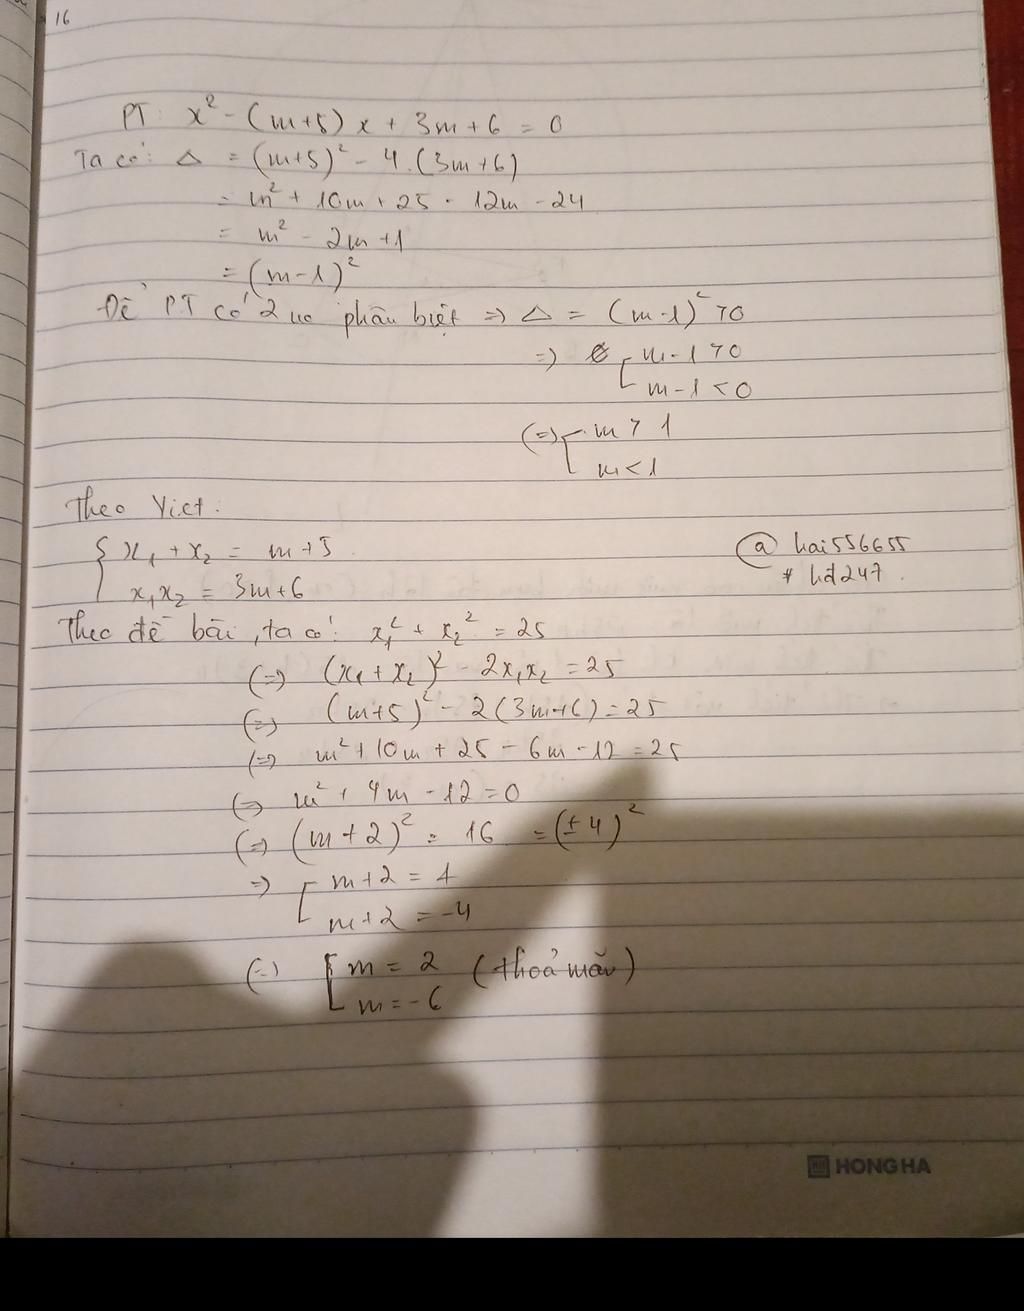 16
PT: x² - (m+5) x + 3m + 6 = 0
Ta có: Δ = (m+5)² - 4.(3m+6)
= m² + 10m + 25 - 12m - 24
= m² - 2m + 1
= (m-1)²
Để PT có 2 no phân biệt => Δ = (m-1)² > 0
=> [ m-1 > 0
m-1 < 0
<=> [ m > 1
m < 1
Theo Viet:
{ x₁ + x₂ = m+5
x₁x₂ = 3m+6
@ hai556655
# hđ247.
Theo đề bài, ta có: x₁² + x₂² = 25
<=> (x₁ + x₂)² - 2x₁x₂ = 25
<=> (m+5)² - 2(3m+6) = 25
<=> m² + 10m + 25 - 6m - 12 = 25
<=> m² + 4m - 12 = 0
<=> (m+2)² = 16 = (±4)²
=> [ m+2 = 4
m+2 = -4
<=> [ m = 2 (thoả mãn)
m = -6
HONG HA